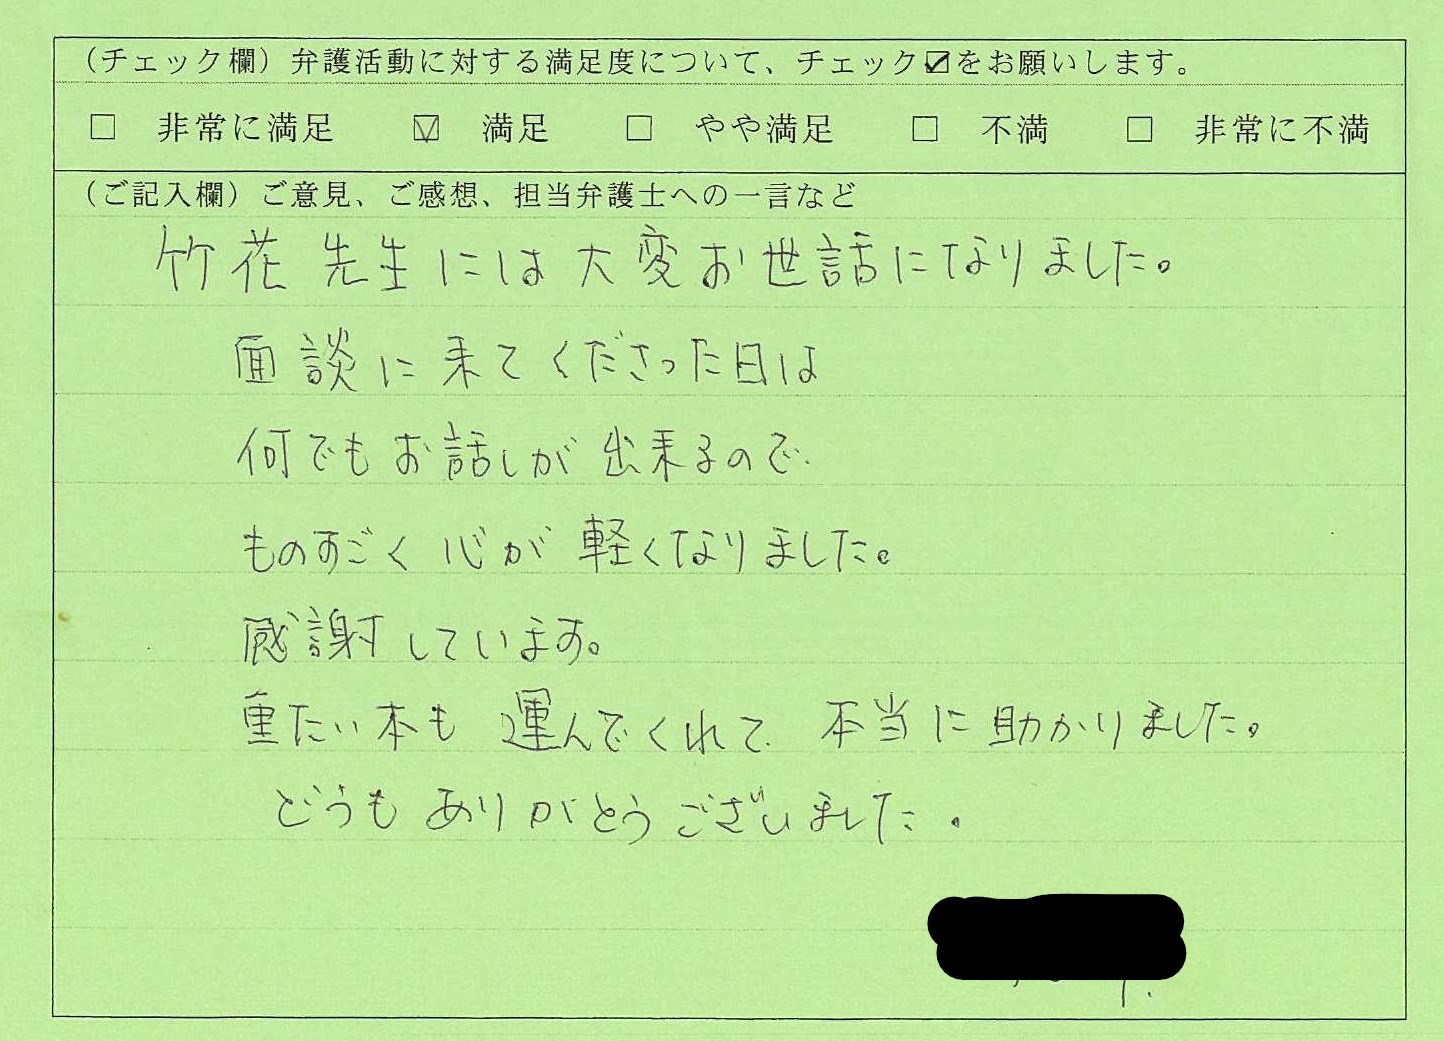 （チェック欄）弁護活動に対する満足度について、チェック☑をお願いします。
□ 非常に満足 ☑ 満足 □ やや満足 □ 不満 □ 非常に不満
（ご記入欄）ご意見、ご感想、担当弁護士への一言など
竹花先生には大変お世話になりました。
面談に来てくださった日は
何でもお話しが出来るので
ものすごく心が軽くなりました。
感謝しています。
重たい本も運んでくれて本当に助かりました。
どうもありがとうございました。